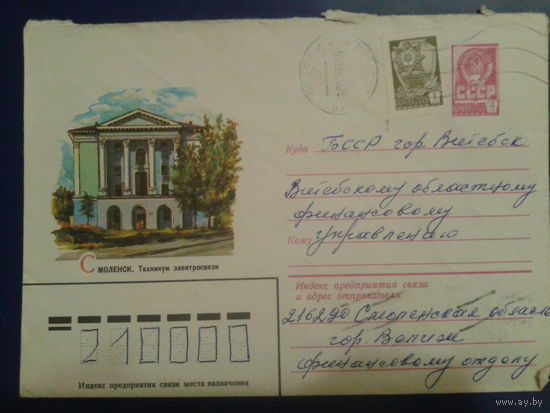 СССР
Куда БССР гор. Витебск
Витебскому областному
финансовому
Кому управлению
СМОЛЕНСК. Техникум электросвязи
Индекс предприятия связи
и адрес отправителя
216290 Смоленская область
гор. Велиж
финансовому отделу
210000
Индекс предприятия связи места назначения
www.ay.by